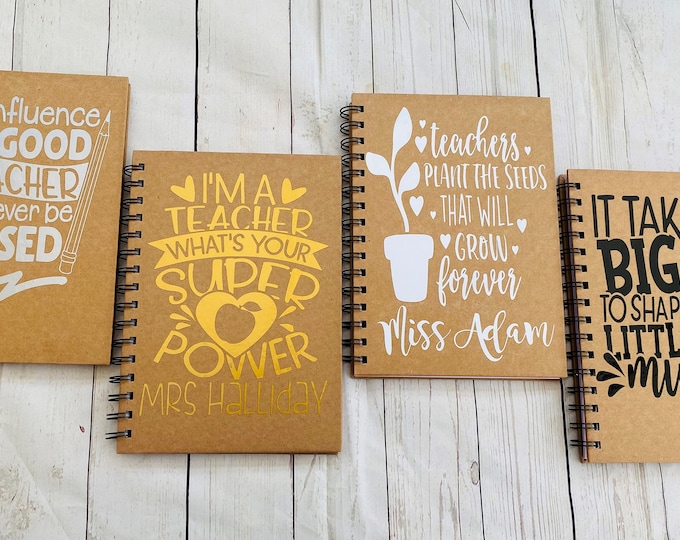 nfluence
GOOD
ACHER
ever be
SED
I'M A
TEACHER
WHAT'S YOUR
SUPER
POWER
MRS Halliday
teachers
PLANT THE SEEDS
THAT WILL
GROW
forever
Miss Adam
IT TAK
BIG
TO SHAP
LITTL
MI